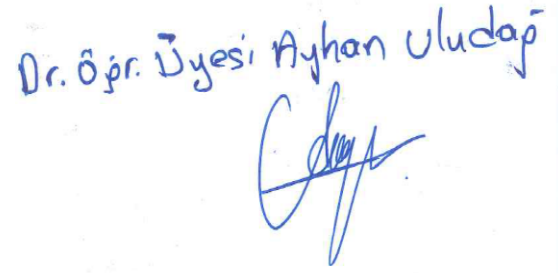 Dr. Öğr. Üyesi Ayhan Uludağ